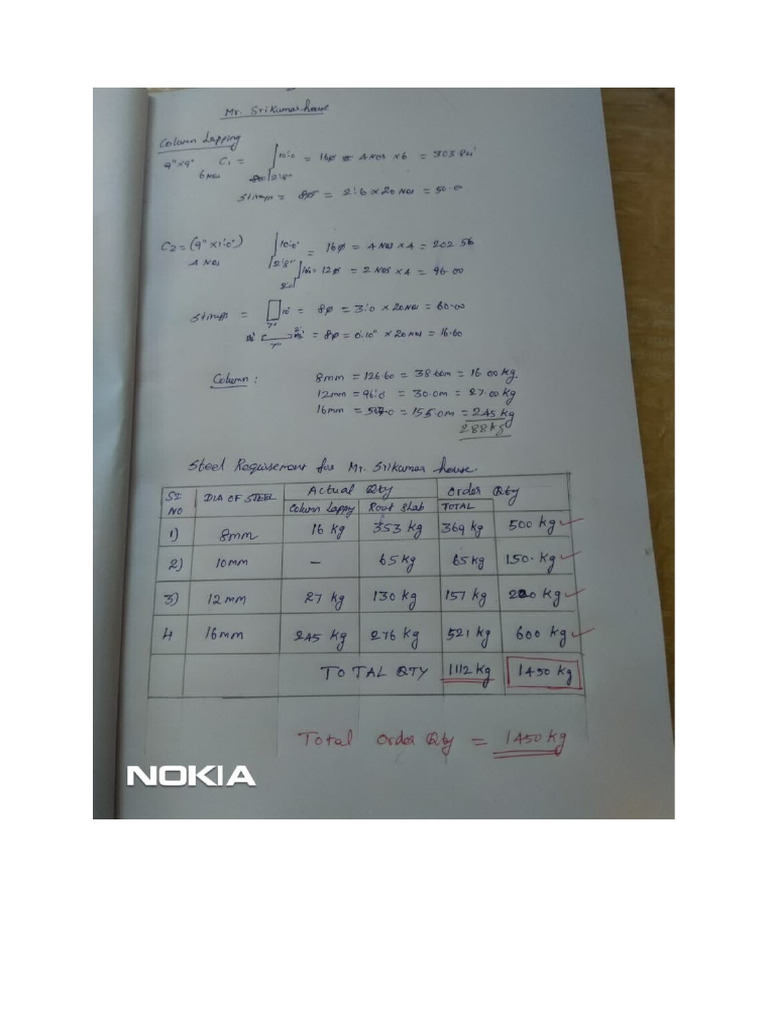 Mr. Srikumar house
Column Lapping
9"x9" C1 = 10'0 = 16ø = 4 Nos x 6 = 303.84'
6 Nos 2'8"
Stirrups = 8ø = 2'6 x 20 Nos = 50.0
C2 = (9" x 1'0") 10'0" = 16ø = 4 Nos x 4 = 202.56
4 Nos 2'8" = 12ø = 2 Nos x 4 = 96.00
Stirrups = = 8ø = 3'0 x 20 Nos = 60.00
7"
= 8ø = 0'10" x 20 Nos = 16.60
7"
Column : 8mm = 126.60 = 38.60m = 16.00 kg
12mm = 96'0 = 30.0m = 27.00 kg
16mm = 507.0 = 155.0m = 245 kg
288 kg
Steel Requirement for Mr. Srikumar house.
SI NO DIA OF STEEL Actual Qty Order Qty
Column Lappy Roof Slab TOTAL
1) 8mm 16 kg 353 kg 369 kg 500 kg
2) 10mm - 65 kg 65 kg 150. kg
3) 12mm 27 kg 130 kg 157 kg 200 kg
4 16mm 245 kg 276 kg 521 kg 600 kg
TOTAL QTY 1112 kg 1450 kg
Total order Qty = 1450 kg
NOKIA